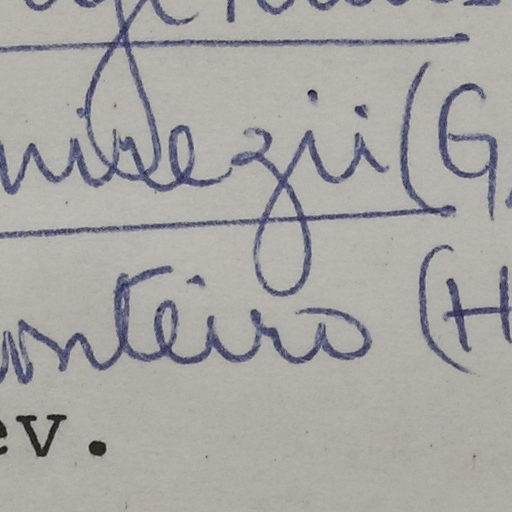 mirezii (G
onteiro (H
ev.